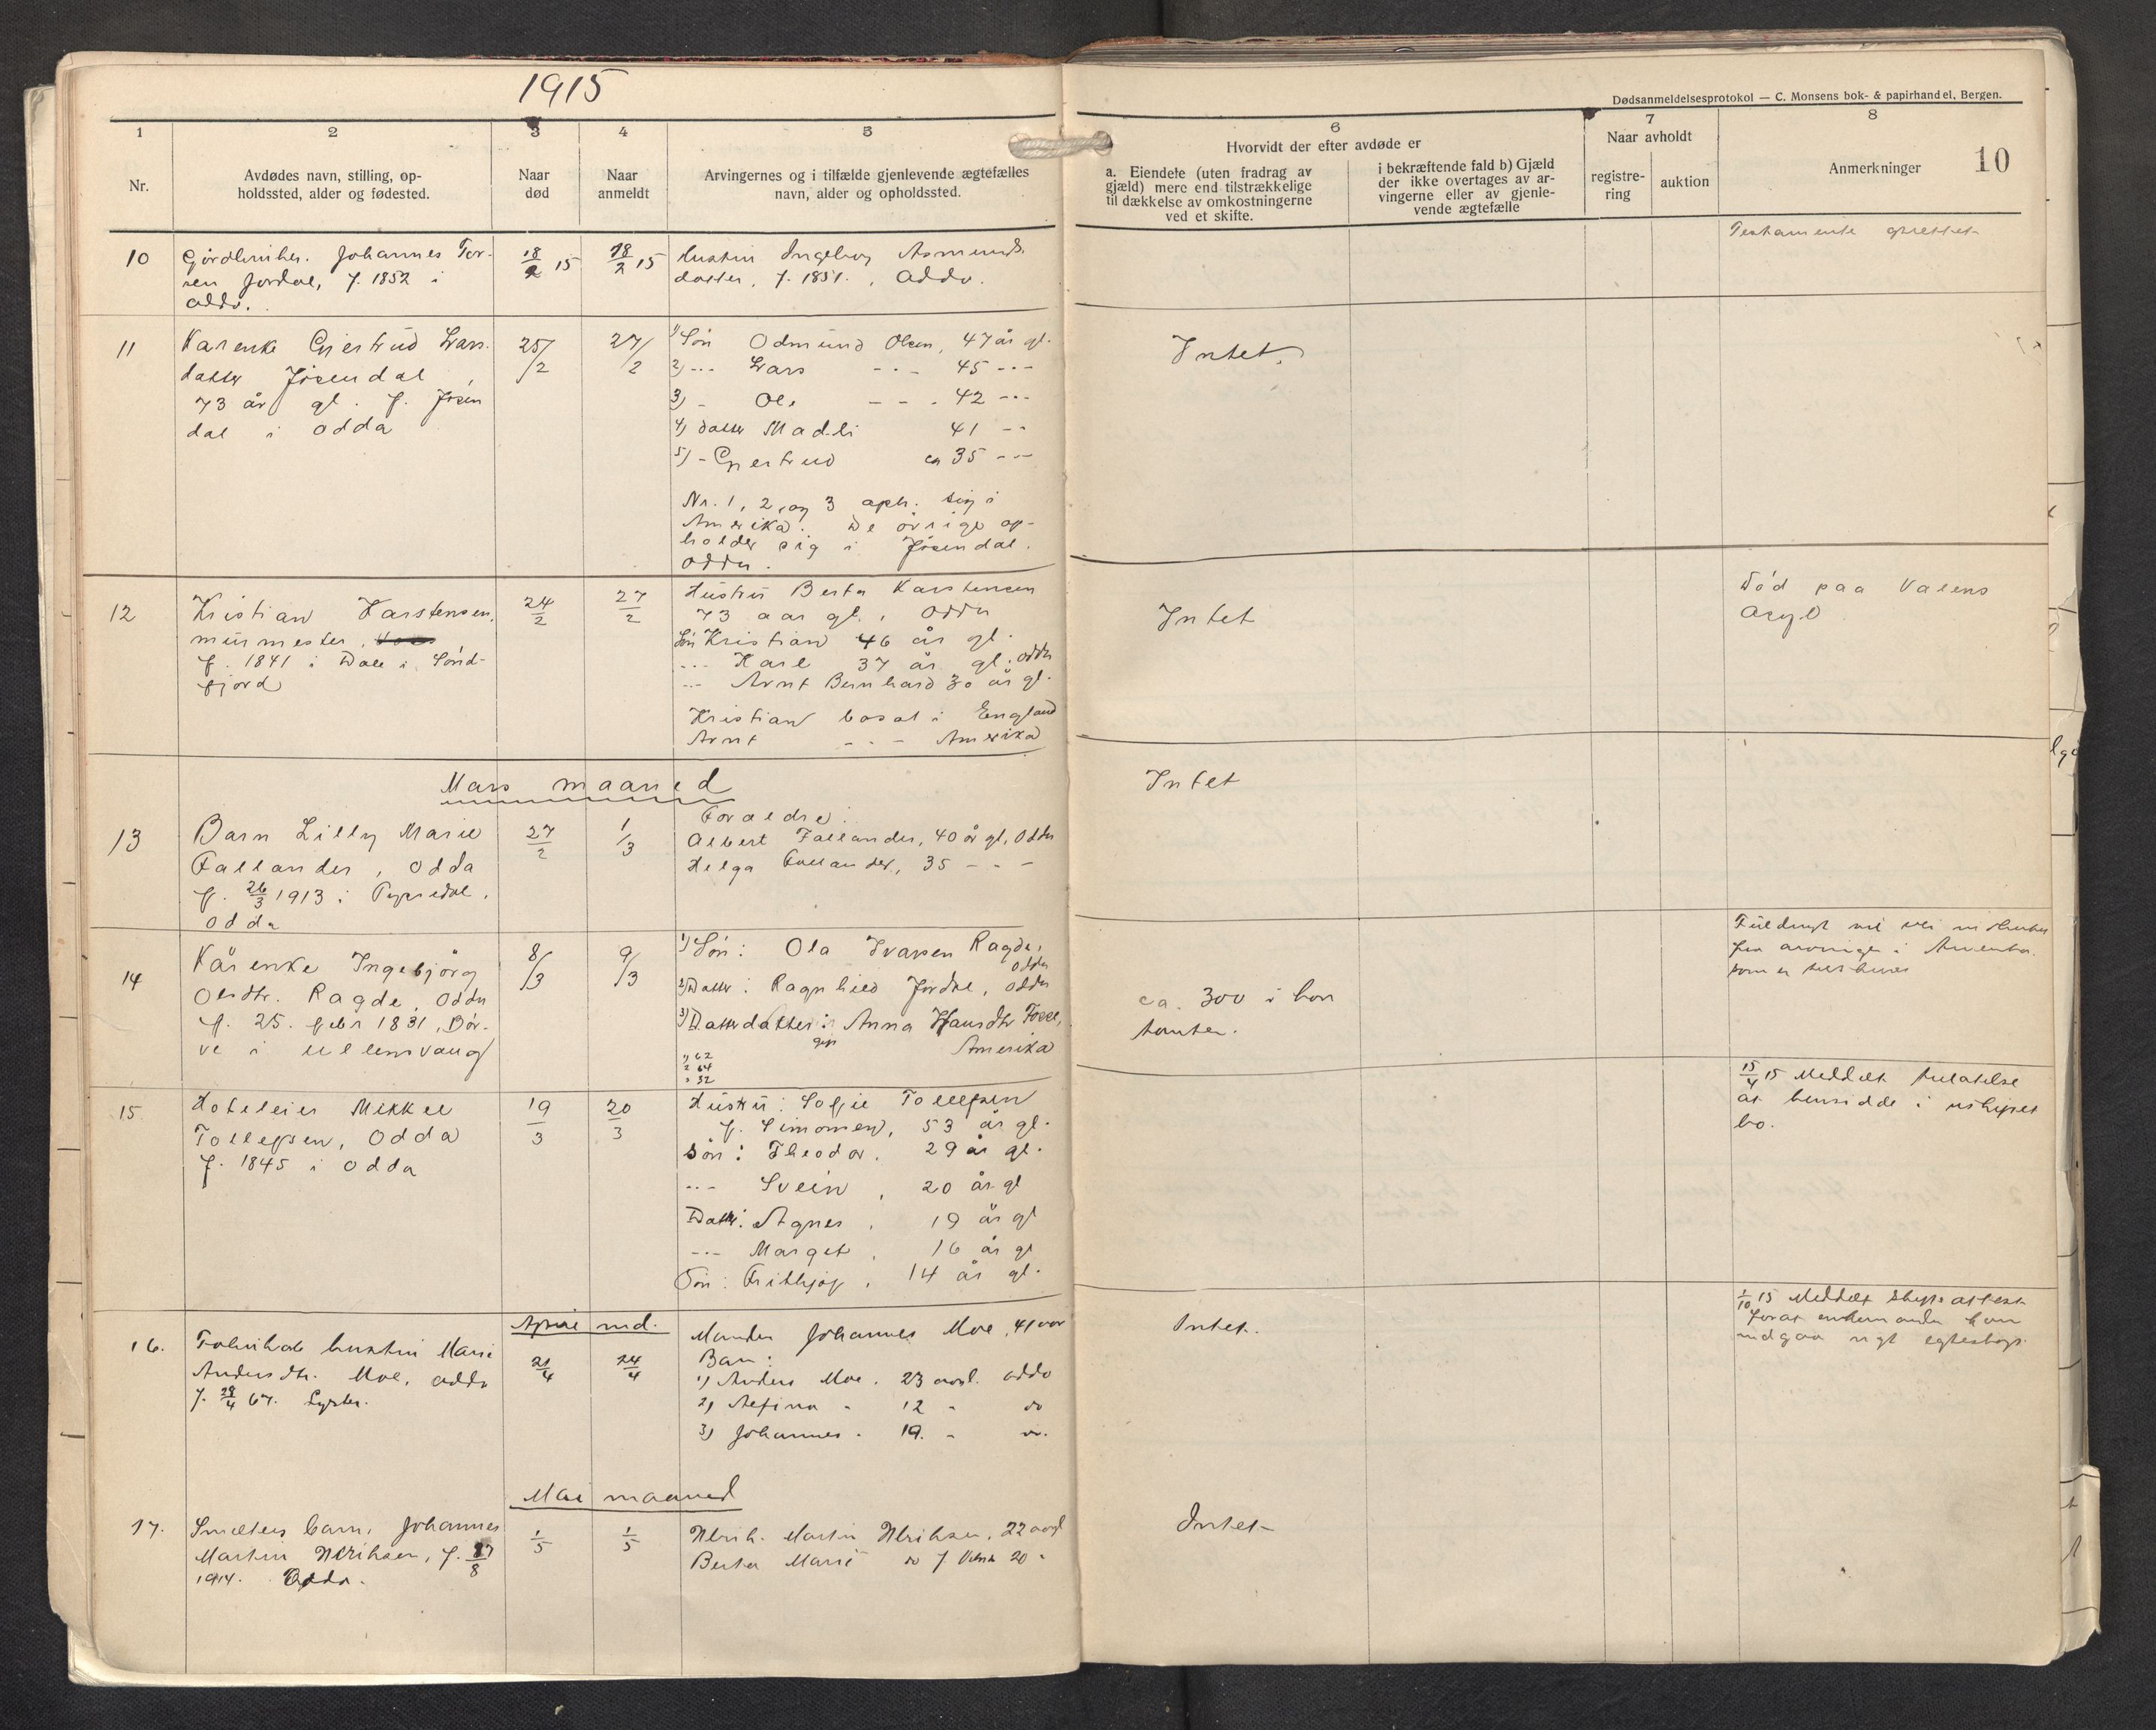 1915
Dødsanmeldelsesprotokol — C. Monsens bok- & papirhandel, Bergen.
10
1
2
3
4
5
6
7
8
Nr.
Avdødes navn, stilling, op-
holdssted, alder og fødested.
Naar
død
Naar
anmeldt
Arvingernes og i tilfælde gjenlevende ægtefælles
navn, alder og opholdssted.
Hvorvidt der efter avdøde er
a. Eiendele (uten fradrag av
gjæld) mere end tilstrækkelige
til dækkelse av omkostningerne
ved et skifte.
i bekræftende fald b) Gjæld
der ikke overtages av ar-
vingerne eller av gjenle-
vende ægtefælle
Naar avholdt
registre-
ring
auktion
Anmerkninger
10
Johannes Tor-
sen Jordal, f. 1852 i
Odda.
18/2 15
18/2 15
Hustru Ingeborg Asmunds
datter, f. 1851., Odda.
Testamente oprettet
11
Karenke Gjertrud Lars.
datter Jøsendal,
73 år gl. f. Jøsen
dal i Odda
25/2
27/2
1) Søn Odmund Olsen, 47 år gl.
2) --- Lars --- 45 ---
3) - Ole --- 42 ---
4) Datter Madli 41 --
5) - Gjertrud ca 35 ---
Nr. 1, 2, og 3 oph. sig i
Amerika. De øvrige op-
holder sig i Jøsendal.
Odda.
Intet.
12
Kristian Karstensen,
murmester,
f. 1841 i Dale i Sønd-
fjord
24/2
27/2
Hustru Berta Karstensen
73 aar gl., Odda
Søn Kristian 46 år gl.
--- Karl 37 år gl. Odda
--- Arnt Bernhard 30 år gl.
Kristian bosat i England
Arnt --- Amerika
Intet
Død paa Valens
Asyl
Mars maaned
13
Barn Lilly Marie
Fallander, Odda
f. 26/3 1913 i
Odda
27/2
1/3
Forældre:
Albert Fallander, 40 år gl, Odda
Helga Fallander, 35 - - -
Intet
14
Kårenke Ingebjørg
Olsdtr. Ragde, Odda
f. 25. febr 1831, Bør-
ve i Ullensvang
8/3
9/3
1) Søn: Ola Ivarsen Ragde,
Odda
2) Datter: Ragnhild Jordal, Odda
3) Datterdatter: Anna Hansdtr
Amerika
1) 62
2 64
3 32
ca. 300 i kon
tanter.
15
Hoteleier Mikkel
Tollefsen, Odda
f. 1845 i Odda
19/3
20/3
Hustru: Sofie Tollefsen
f. Simonsen, 53 år gl.
Søn: Theodor, 29 år gl.
--- Svein, 20 år gl
Datter: Agnes, 19 år gl
--- Marget, 16 år gl
Søn: Frithjof, 14 år gl.
15/4 15 Meddelt tilladelse
at hensidde i uskiftet
bo.
April md.
16.
hustru Marie
Andersdtr. Moe, Odda
f. 28/4 67. Lyster.
21/4
24/4
Manden Johannes Moe, 41 aar
Barn:
1) Anders Moe. 23 aargl. Odda
2) - 12 - do
3) Johannes - 19. - do.
Intet.
1/10 15 Meddelt skifteattest
forat enkemanden kan
indgaa nyt egteskap.
Mai maaned
17.
Smelters barn, Johannes
Martin Ulriksen, f. 27/8
1914. Odda.
1/5
1/5
Ulrik Martin Ulriksen, 22 aargl
Berta Marie do f. 20 -
Intet